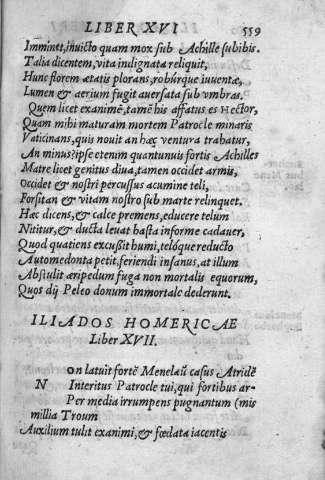 LIBER XVI 559
Imminet, inuicto quam mox sub Achille subibis.
Talia dicentem, vita indignata reliquit,
Hunc florem ætatis plorans, robúrque iuuentæ,
Lumen & aerium fugit auersata sub vmbras.
Quem licet exanimẽ, tamẽ his affatus es Hector,
Quam mihi maturam mortem Patrocle minaris
Vaticinans, quis nouit an hæc ventura trahatur,
An minus? ipse etenim quantumuis fortis Achilles
Matre licet genitus diua, tamen occidet armis,
Occidet & nostri percussus acumine teli,
Forsitan & vitam nostro sub marte relinquet.
Hæc dicens, & calce premens, educere telum
Nititur, & ducta leuat hasta informe cadauer,
Quod quatiens excußit humi, telóque reducto
Automedonta petit, feriendi insanus, at illum
Abstulit æripedum fuga non mortalis equorum,
Quos dij Peleo donum immortale dederunt.
ILIADOS HOMERICAE
Liber XVII.
NOn latuit fortẽ Menelaũ casus Atridẽ
Interitus Patrocle tui, qui fortibus ar-
Per media irrumpens pugnantum (mis
millia Troum
Auxilium tulit exanimi, & fœdata iacentis